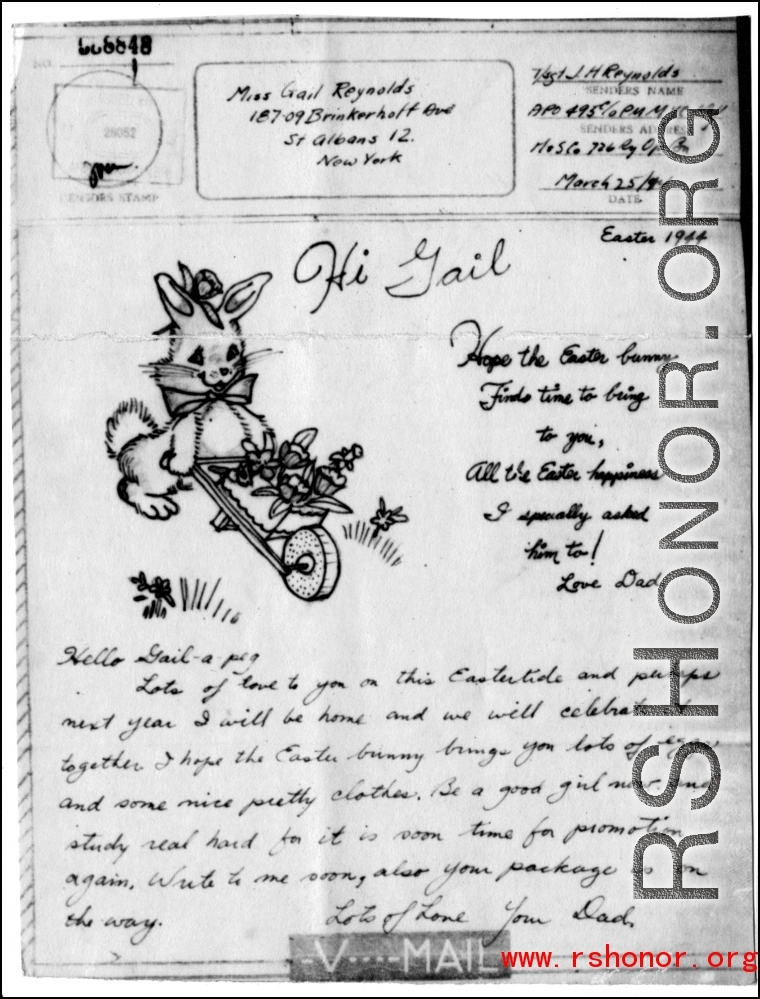 668848
No.
28082
CENSORS STAMP
Miss Gail Reynolds
187-09 Brinkerhoff Ave
St Albans 12.
New York
T/Sgt J H Reynolds
SENDERS NAME
APO 495 c/o P M
SENDERS ADDRESS
726 Ry Op Bn
March 25/
DATE
Easter 1944
Hi Gail
Hope the Easter bunny
Finds time to bring
to you,
All the Easter happiness
I specially asked
him to!
Love Dad
Hello Gail-a-peg
Lots of love to you on this Eastertide and perhaps
next year I will be home and we will celebrate it
together I hope the Easter bunny brings you lots of eggs
and some nice pretty clothes. Be a good girl now and
study real hard for it is soon time for promotion
again. Write to me soon, also your package is on
the way.
Lots of Love Your Dad.
V----MAIL
RSHONOR.ORG
www.rshonor.org